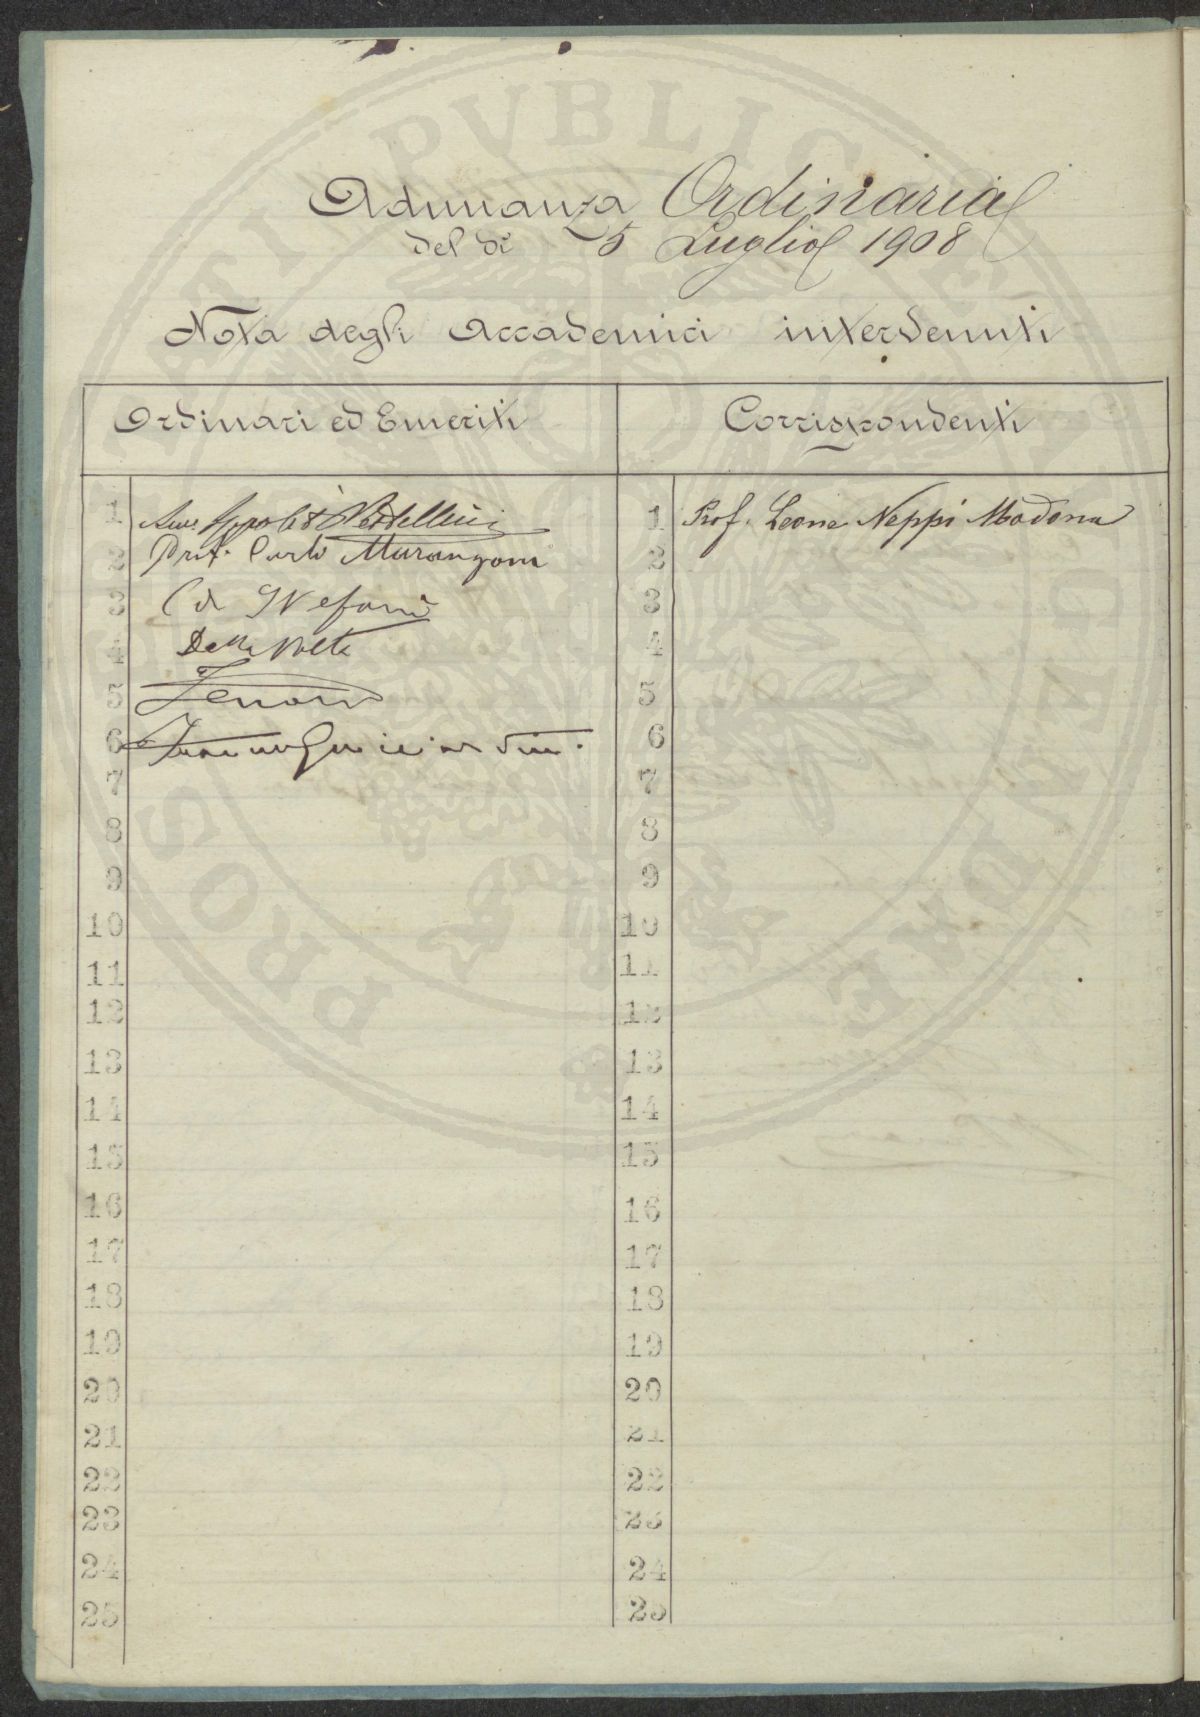 PROSPERITATI PUBLICAE AUGENDAE
Adunanza Ordinaria
del dì 5 Luglio 1908
Nota degli Accademici intervenuti
Ordinari ed Emeriti
1
2 Prof. Carlo Marangoni
3 C de Stefani
4 Della Volta
5
6 Francesco Guicciardini.
7
8
9
10
11
12
13
14
15
16
17
18
19
20
21
22
23
24
25
Corrispondenti
1 Prof. Leone Neppi Modona
2
3
4
5
6
7
8
9
10
11
12
13
14
15
16
17
18
19
20
21
22
23
24
25